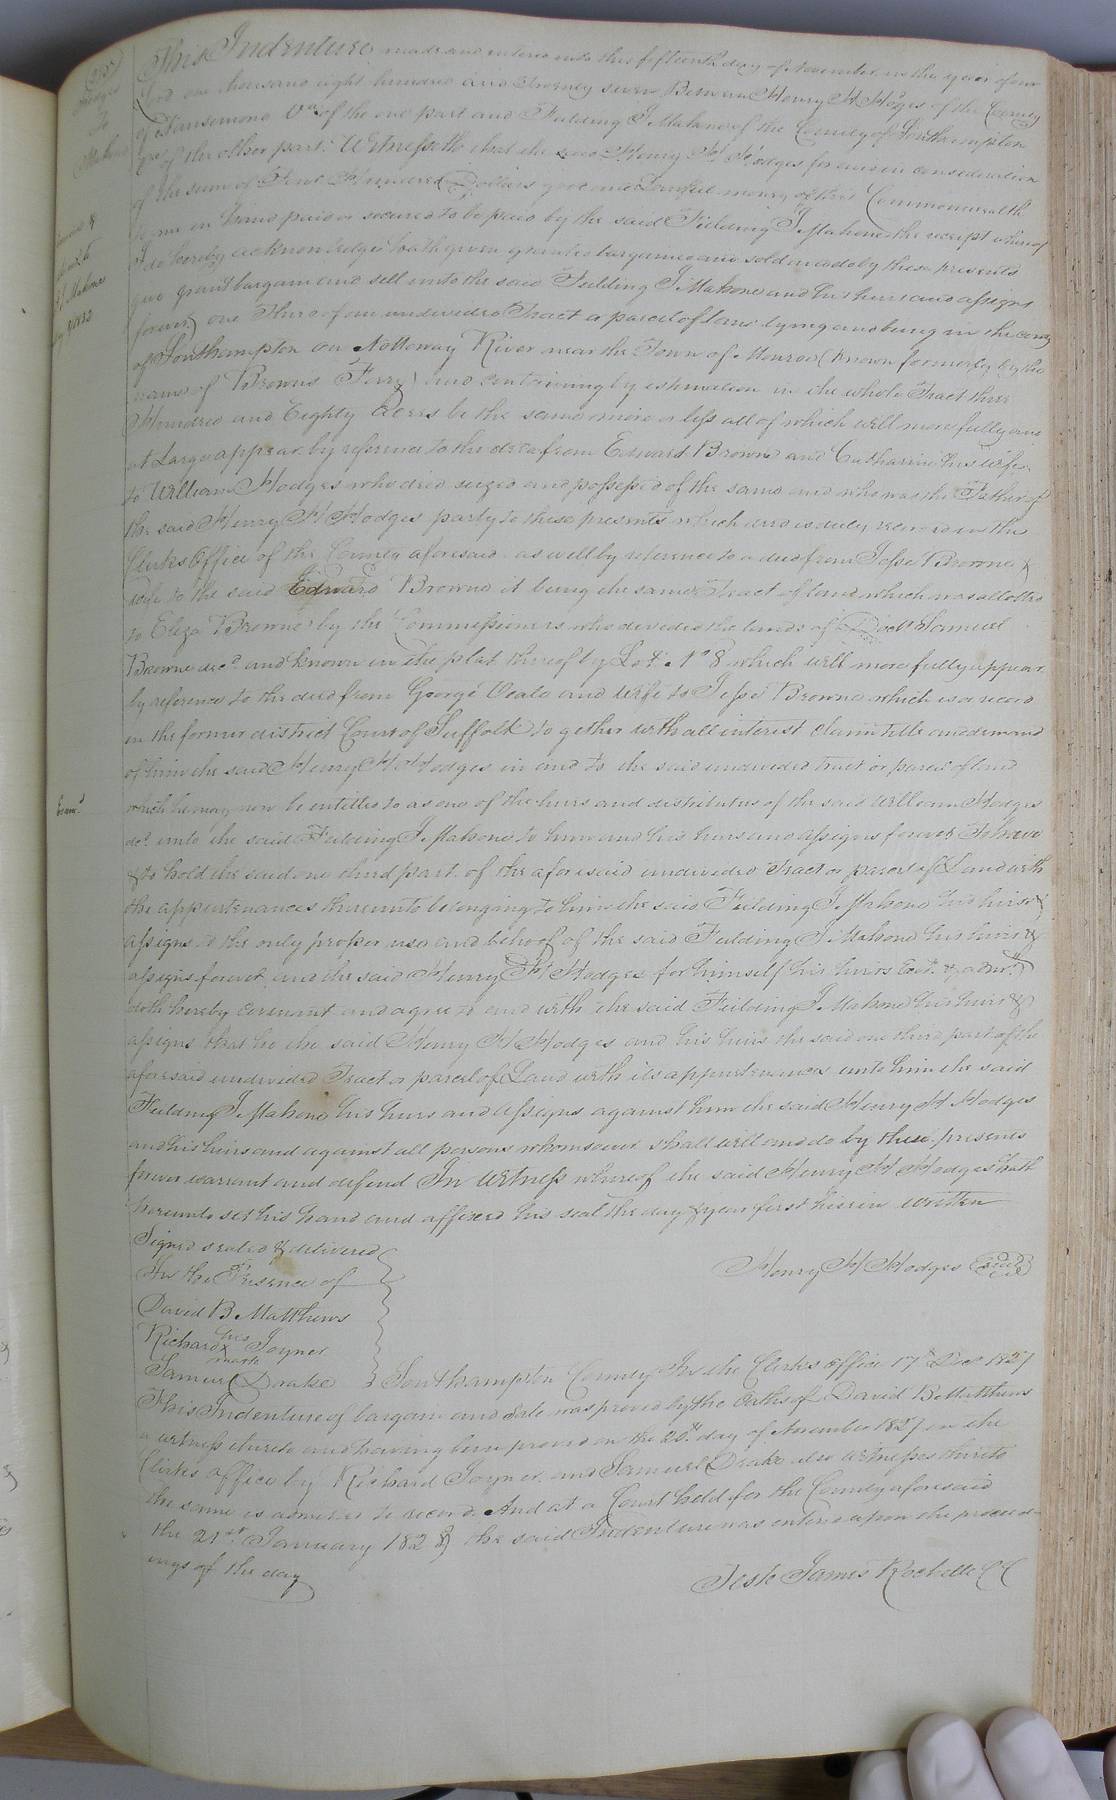 Hodges
To
Mahone
This Indenture made and entered into this fifteenth day of November in the year of our
Lord one thousand eight hundred and Twenty seven Between Henry H Hodges of the County
of Nansemond Va. of the one part and Fielding J Mahone of the County of Southampton
of the other part. Witnesseth that the said Henry H Hodges for and in consideration
of the sum of Hundred Dollars good and Lawful money of this Commonwealth
to me in hand paid or secured to be paid by the said Fielding J Mahone the receipt whereof
I do hereby acknowledge hath given granted bargained and sold and do by these presents
give grant bargain and sell unto the said Fielding J Mahone and his heirs and assigns
forever, one Third of an undivided Tract or parcel of land lying and being in the County
of Southampton on Nottoway River near the Town of Monroe (known formerly by the
name of Browns Ferry) and containing by estimation in the whole Tract three
Hundred and Eighty Acres be the same more or less all of which will more fully and
at Large appear by reference to the deed from Edward Browne and Catharine his wife
to William Hodges who died seized and possessed of the same and who was the Father of
the said Henry H Hodges party to these presents which deed is duly recorded in the
Clerks Office of the County aforesaid as well by reference to a deed from Jesse Browne &
wife to the said Edward Browne it being the same Tract of land which was allotted
to Eliza Browne by the Commissioners who devided the lands of Doctr Samuel
Browne decd. and known in the plat thereof by Lot No 8 which will more fully appear
by reference to the deed from George Veale and wife to Jesse Browne which is a record
in the former district Court of Suffolk to gether with all interest claim title and demand
of him the said Henry H Hodges in and to the said undivided tract or parcel of land
which he may now be entitled to as one of the heirs and distributees of the said William Hodges
decd. unto the said Fielding J Mahone to him and his heirs and assigns forever To have
& to hold the said one third part of the aforesaid undivided Tract or parcel of Land with
the appurtenances thereunto belonging to him the said Fielding J Mahone his heirs &
assigns to the only proper use and behoof of the said Fielding J Mahone his heirs &
assigns forever and the said Henry H Hodges for himself his heirs Exrs. & admrs.
doth hereby covenant and agree to and with the said Fielding J Mahone his heirs &
assigns that he the said Henry H Hodges and his heirs the said one third part of the
aforesaid undivided Tract or parcel of Land with its appurtenances unto him the said
Fielding J Mahone his heirs and assigns against him the said Henry H Hodges
and his heirs and against all persons whomsoever shall will and do by these presents
forever warrant and defend In Witness whereof the said Henry H Hodges hath
hereunto set his hand and affixed his seal the day & year first herein written
Signed sealed & delivered
In the Presence of
Henry H Hodges Seal
David B Matthews
Richard his x mark Joyner
Samuel Drake
Southampton County In the Clerks office 17th Decr 1827
This Indenture of bargain and Sale was proved by the Oaths of David B Matthews
a witness thereto and having been proved on the 20th day of November 1827 in the
Clerks office by Richard Joyner and Samuel Drake also witnesses thereto
the same is admitted to record. And at a Court held for the County aforesaid
the 21st January 1828 the said Indenture was entered upon the proceed-
ings of the day
Teste James Rochelle CC